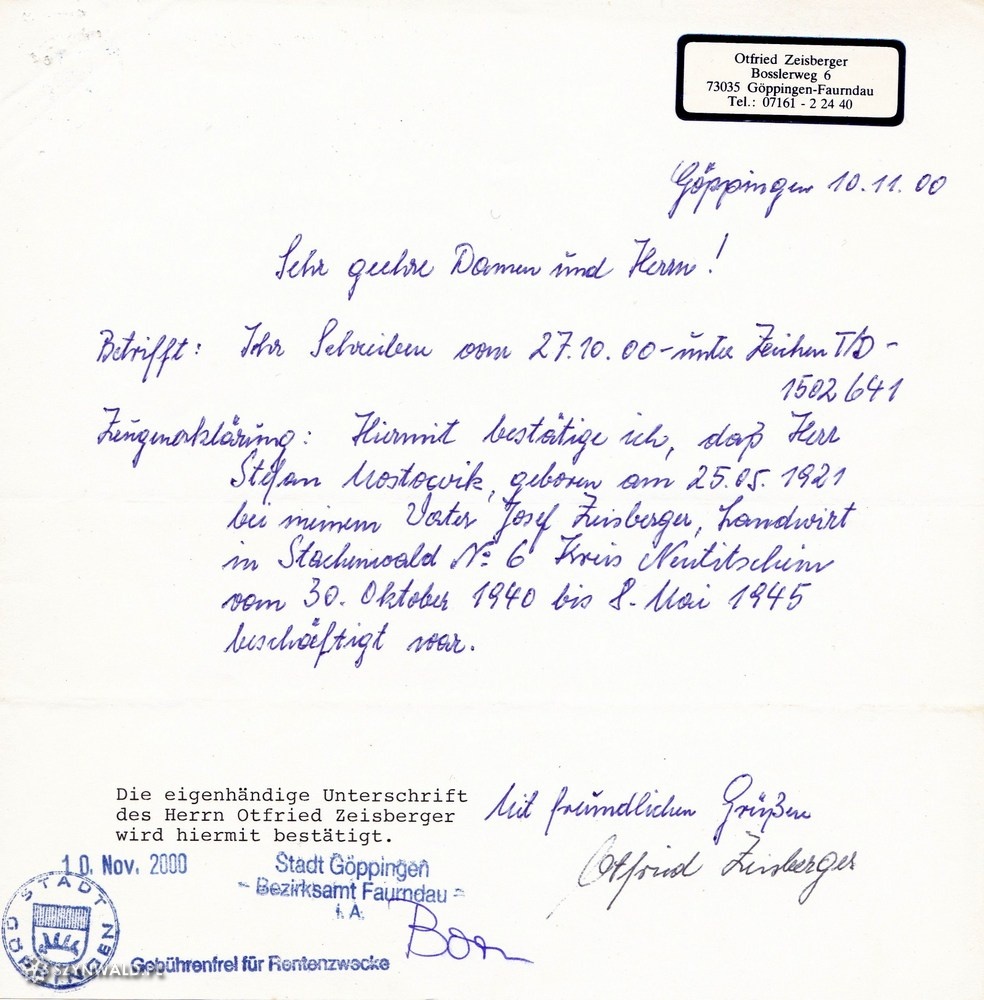 Otfried Zeisberger
Bosslerweg 6
73035 Göppingen-Faurndau
Tel.: 07161 - 2 24 40
Göppingen 10.11.00
Sehr geehre Damen und Herrn!
Betrifft: Ihr Schreiben vom 27.10.00 - unter Zeichen T/D -
1502 641
Zeugenerklärung: Hiermit bestätige ich, daß Herr
Stefan, geboren am 25.05.1921
bei meinem Vater Josef Zeisberger, Landwirt
in Stachenwald No 6 Kreis Neutitschein
vom 30. Oktober 1940 bis 8. Mai 1945
beschäftigt war.
Die eigenhändige Unterschrift
des Herrn Otfried Zeisberger
wird hiermit bestätigt.
Mit freundlichen Grüßen
Otfried Zeisberger
10. Nov. 2000
Stadt Göppingen
- Bezirksamt Faurndau -
i. A.
STADT GÖPPINGEN
Gebührenfrei für Rentenzwecke
SZYNWALD.PL